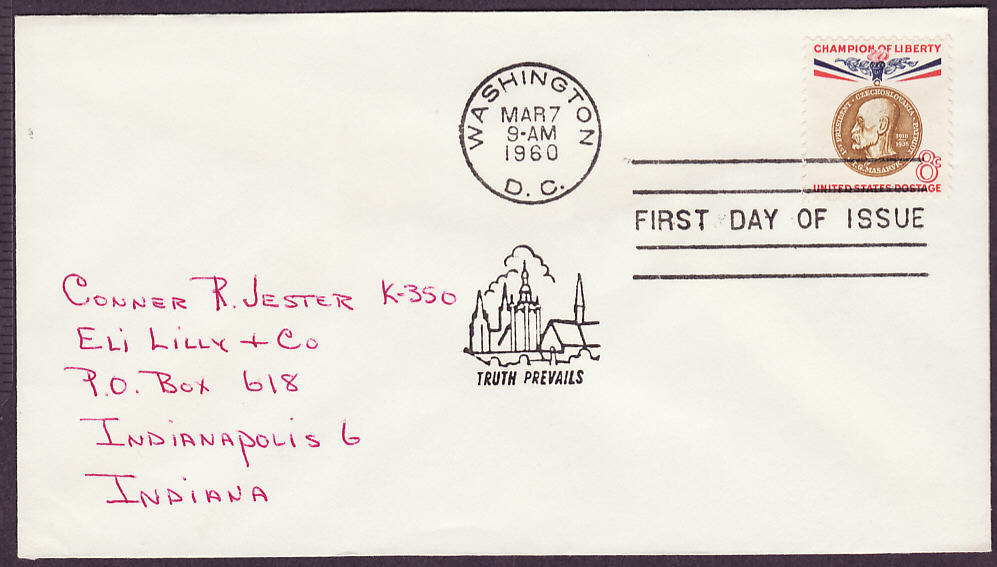 CHAMPION OF LIBERTY
1ST PRESIDENT · CZECHOSLOVAKIA · PATRIOT
T.G. MASARYK
8c
UNITED STATES POSTAGE
WASHINGTON
MAR 7
9-AM
1960
D. C.
FIRST DAY OF ISSUE
TRUTH PREVAILS
CONNER R. JESTER K-350
ELI LILLY + CO
P.O. BOX 618
INDIANAPOLIS 6
INDIANA